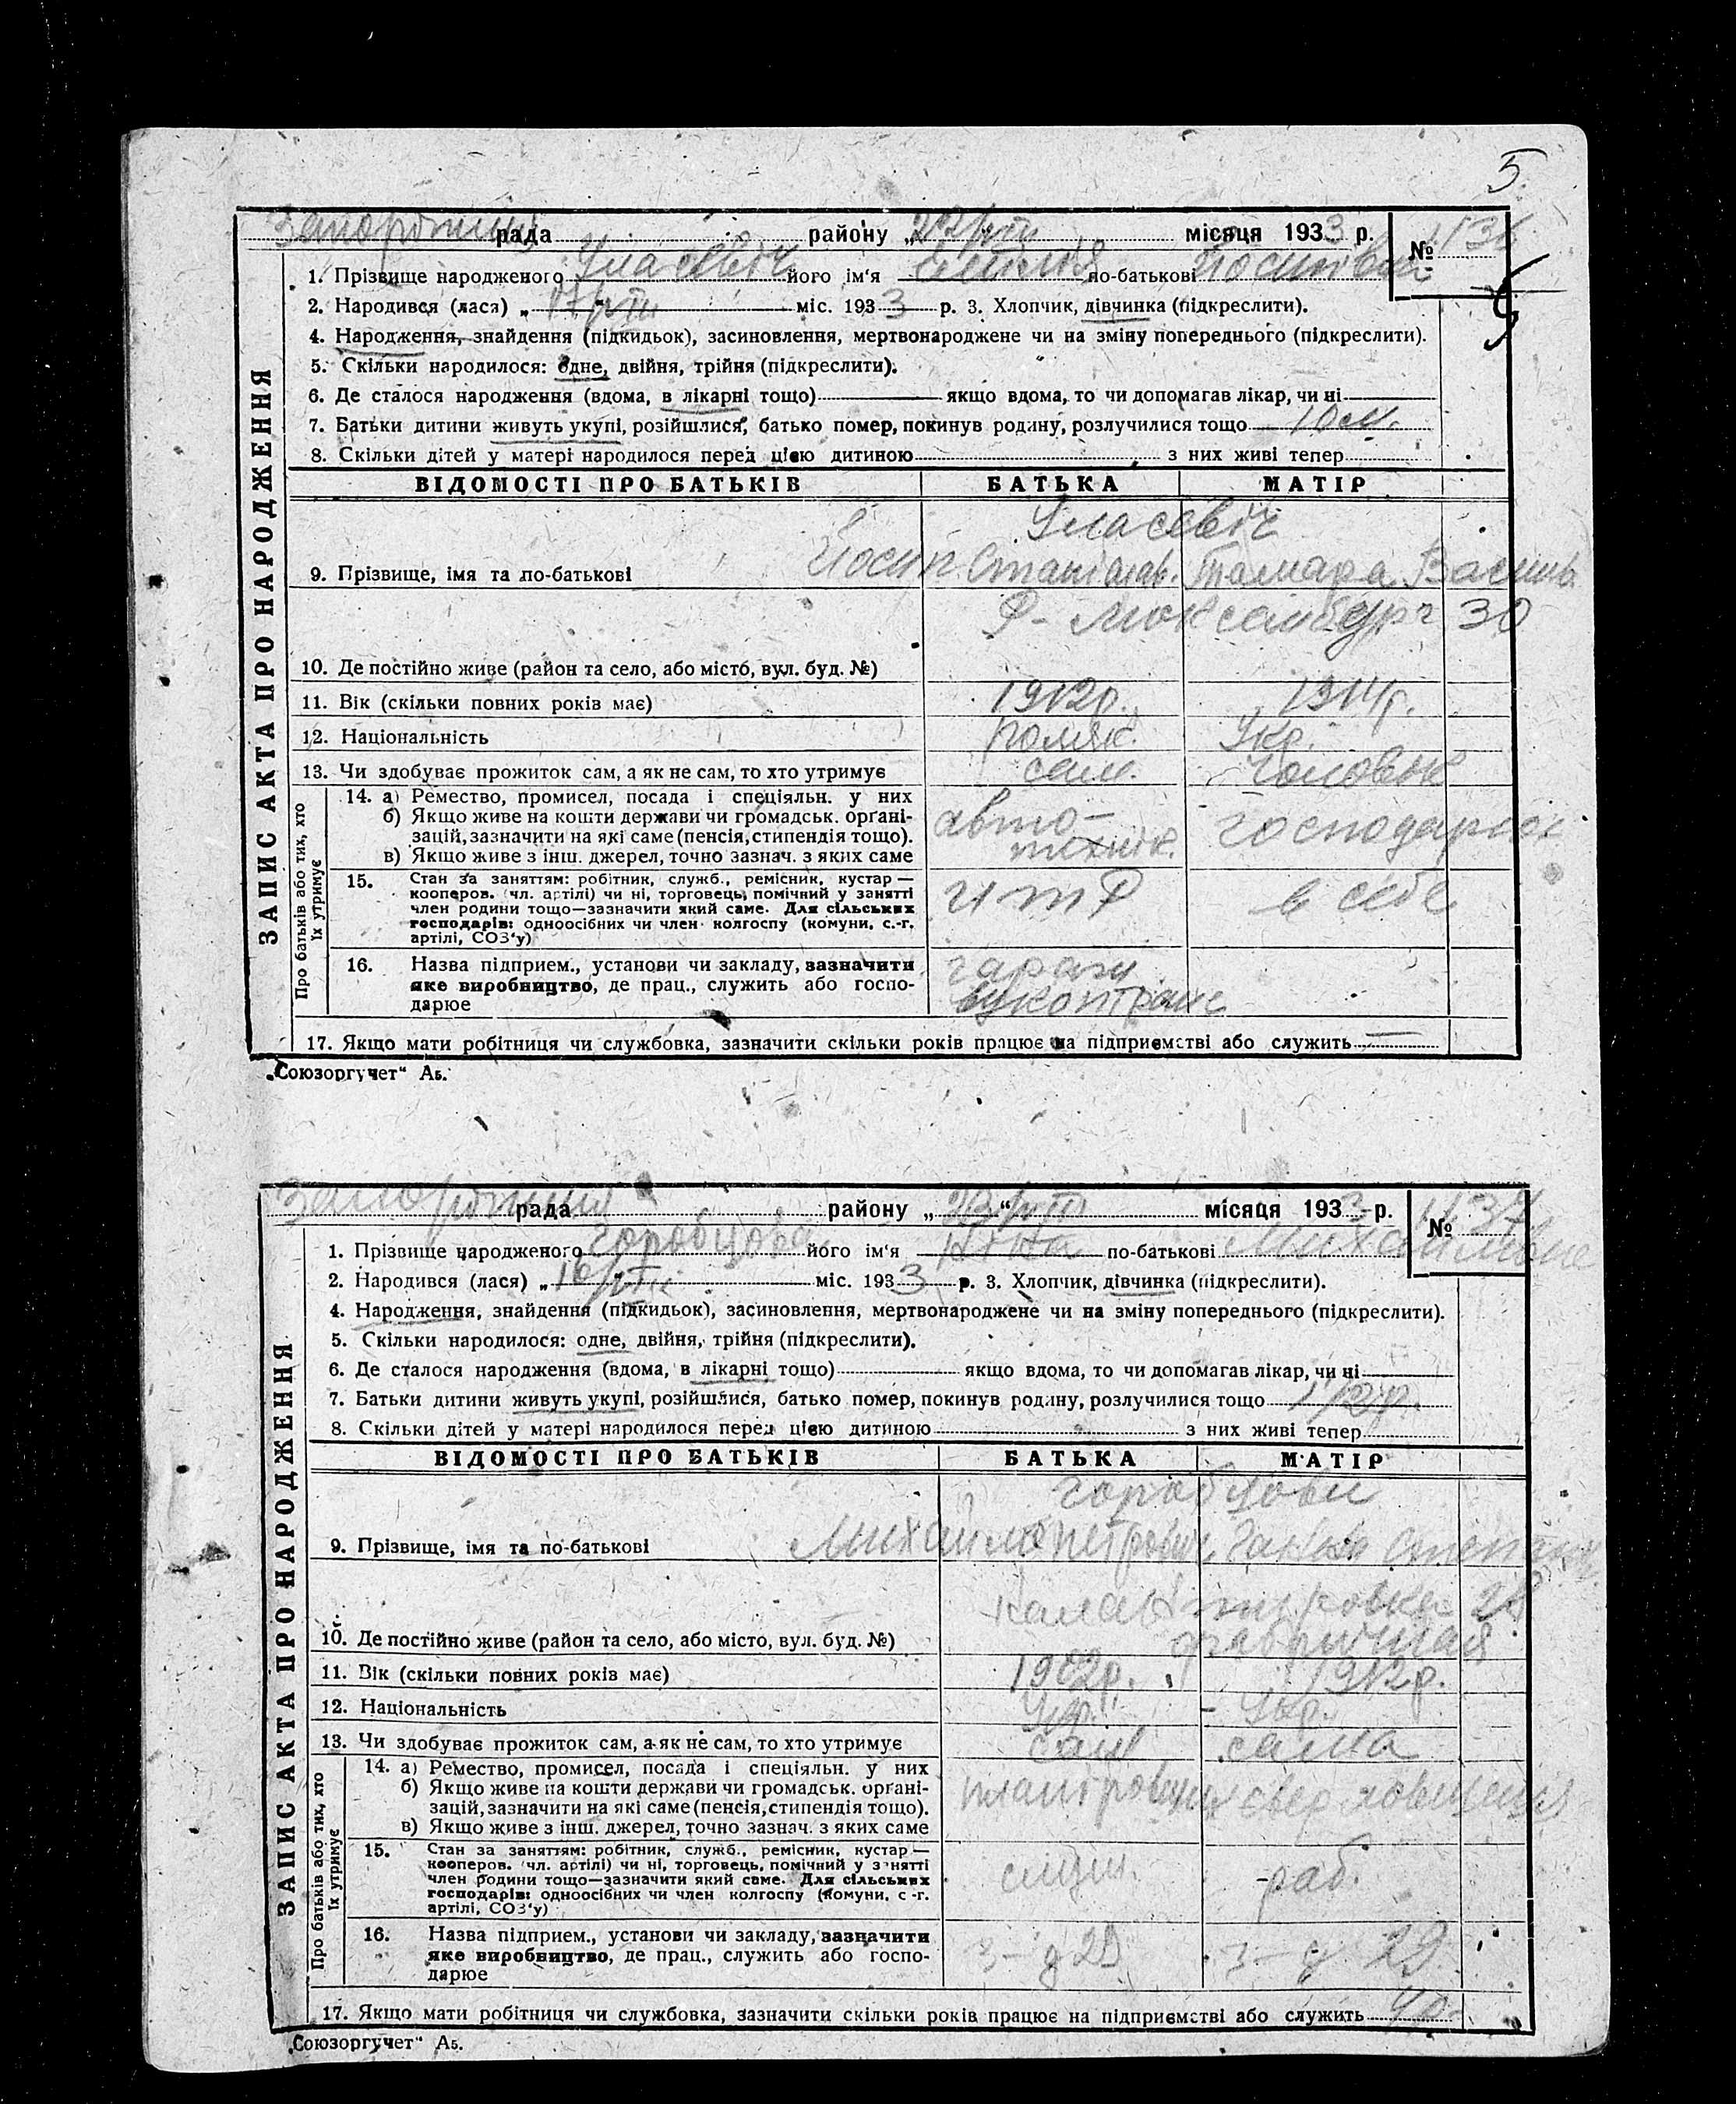 5
Запоріжжя рада районУ „22/VIII місяця 1933 р. № 1136
1. Прізвище народженого Уласевіч його ім'я по-батькові Йосипівна
2. Народився (лася) „17/VIII міс. 1933 р. 3. Хлопчик, дівчинка (підкреслити).
4. Народження, знайдення (підкидьок), засиновлення, мертвонароджене чи на зміну попереднього (підкреслити).
5. Скільки народилося: одне, двійня, трійня (підкреслити).
6. Де сталося народження (вдома, в лікарні тощо) якщо вдома, то чи допомагав лікар, чи ні
7. Батьки дитини живуть укупі, розійшлися, батько помер, покинув родину, розлучилися тощо 10 м.
8. Скільки дітей у матері народилося перед цією дитиною з них живі тепер
ЗАПИС АКТА ПРО НАРОДЖЕННЯ
ВІДОМОСТІ ПРО БАТЬКІВ БАТЬКА МАТІР
Уласевіч
9. Прізвище, імя та по-батькові Йосип Станіслав. Тамара Василь
Р-Люксембург 30
10. Де постійно живе (район та село, або місто, вул. буд. №)
11. Вік (скільки повних років має) 1912р. 1914р.
12. Національність поляк. Укр.
13. Чи здобуває прожиток сам, а як не сам, то хто утримує сам. чоловік
Про батьків або тих, хто їх утримує
14. а) Ремество, промисел, посада і спеціяльн. у них
б) Якщо живе на кошти держави чи громадськ. органі-
зацій, зазначити на які саме (пенсія, стипендія тощо). авто- господарює
в) Якщо живе з інш. джерел, точно зазнач. з яких саме технік.
15. Стан за заняттям: робітник, служб., ремісник, кустар —
кооперов. чл. артілі) чи ні, торговець, помічний у занятті
член родини тощо—зазначити який саме. Для сільських ИТР в себе
господарів: одноосібних чи член колгоспу (комуни, с.-г.
артілі, СОЗ'у)
16. Назва підприєм., установи чи закладу, зазначити гараж
яке виробництво, де прац., служить або госпо-
дарює
17. Якщо мати робітниця чи службовка, зазначити скільки років працює на підприємстві або служить —
„Союзоргучет" Аб.
Запоріжжя рада району „23/VIII" місяця 1933 р. № 1137
1. Прізвище народженого Горобцова його ім'я Ніна по-батькові Михайловн
2. Народився (лася) „16/VIII міс. 1933 р. 3. Хлопчик, дівчинка (підкреслити).
4. Народження, знайдення (підкидьок), засиновлення, мертвонароджене чи на зміну попереднього (підкреслити).
5. Скільки народилося: одне, двійня, трійня (підкреслити).
6. Де сталося народження (вдома, в лікарні тощо) якщо вдома, то чи допомагав лікар, чи ні
7. Батьки дитини живуть укупі, розійшлися, батько помер, покинув родину, розлучилися тощо
8. Скільки дітей у матері народилося перед цією дитиною з них живі тепер
ЗАПИС АКТА ПРО НАРОДЖЕННЯ
ВІДОМОСТІ ПРО БАТЬКІВ БАТЬКА МАТІР
Горобцови
9. Прізвище, імя та по-батькові Михайло Петрович Ганна Степан
28
10. Де постійно живе (район та село, або місто, вул. буд. №) фабричная
11. Вік (скільки повних років має) 1902р. 1912р.
12. Національність Укр. Укр.
13. Чи здобуває прожиток сам, а як не сам, то хто утримує сам сама
Про батьків або тих, хто їх утримує
14. а) Ремество, промисел, посада і спеціяльн. у них
б) Якщо живе на кошти держави чи громадськ. органі-
зацій, зазначити на які саме (пенсія, стипендія тощо).
в) Якщо живе з інш. джерел, точно зазнач. з яких саме
15. Стан за заняттям: робітник, служб., ремісник, кустар —
кооперов. чл. артілі) чи ні, торговець, помічний у занятті
член родини тощо—зазначити який саме. Для сільських служ. раб.
господарів: одноосібних чи член колгоспу (комуни, с-г.
артілі, СОЗ'у)
16. Назва підприєм., установи чи закладу, зазначити
яке виробництво, де прац., служить або госпо- з-д 29 з-д 29
дарює
17. Якщо мати робітниця чи службовка, зазначити скільки років працює на підприємстві або служить 4р.
„Союзоргучет" Аб.